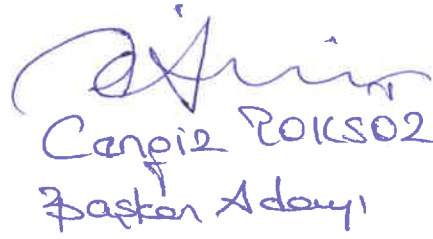 Cengiz YOKSOZ
Başkan Adayı